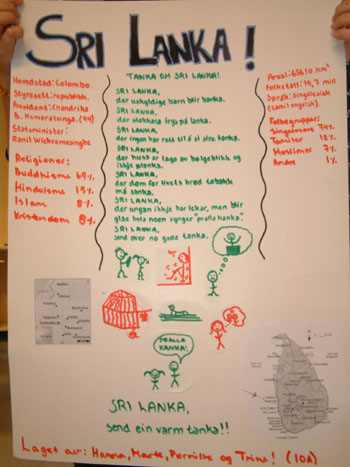 SRI LANKA!
Hovedstad: Colombo.
Styresett: republikk.
President: Chandrika
b. Kumaratunga. (94)
Statsminister:
Ranil Wickremesinghe
Religioner:
Buddhisme 69%
Hinduisme 15%
Islam 8%
Kristendom 8%
TANKA OM SRI LANKA!
SRI LANKA,
der uskyldige barn blir banka.
SRI LANKA,
der stakkars frys på lanka.
SRI LANKA,
der ingen har rett til å si sine tanka.
SRI LANKA,
der husa er laga av bølgeblikk og
ikkje planka.
SRI LANKA,
der dem for livets brød
må sanka.
SRI LANKA,
der ungan ikkje har lekar, men blir
glae hvis noen synger "pralla kanka".
SRI LANKA,
send over no gode tanka.
Areal: 65610 km²
Folketall: 19,2 mill
Språk: Singalesisk
(tamil, engelsk)
Folkegrupper:
Singalesere 74%
Tamiler 18%
Muslimer 7%
Andre 1%
PRALLA
KANKA!
SRI LANKA,
send ein varm tanke!!
Laget av: Hanna, Marte, Pernille og Trine! (10A)